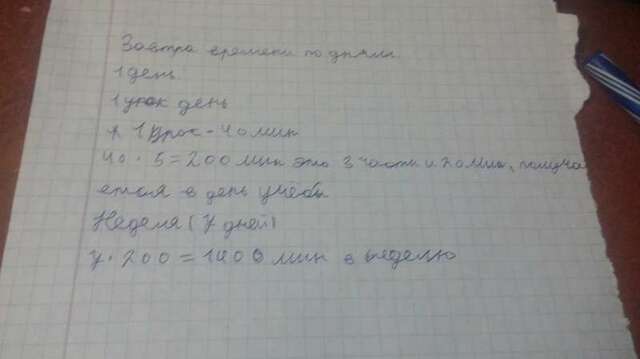 Затра времени по дням.
1 день
1 урок день
1 урок - 40 мин
40 · 5 = 200 мин это 3 части и 20 мин, получа
ется в день учебы
Неделя (7 дней)
7 · 200 = 1400 мин в неделю